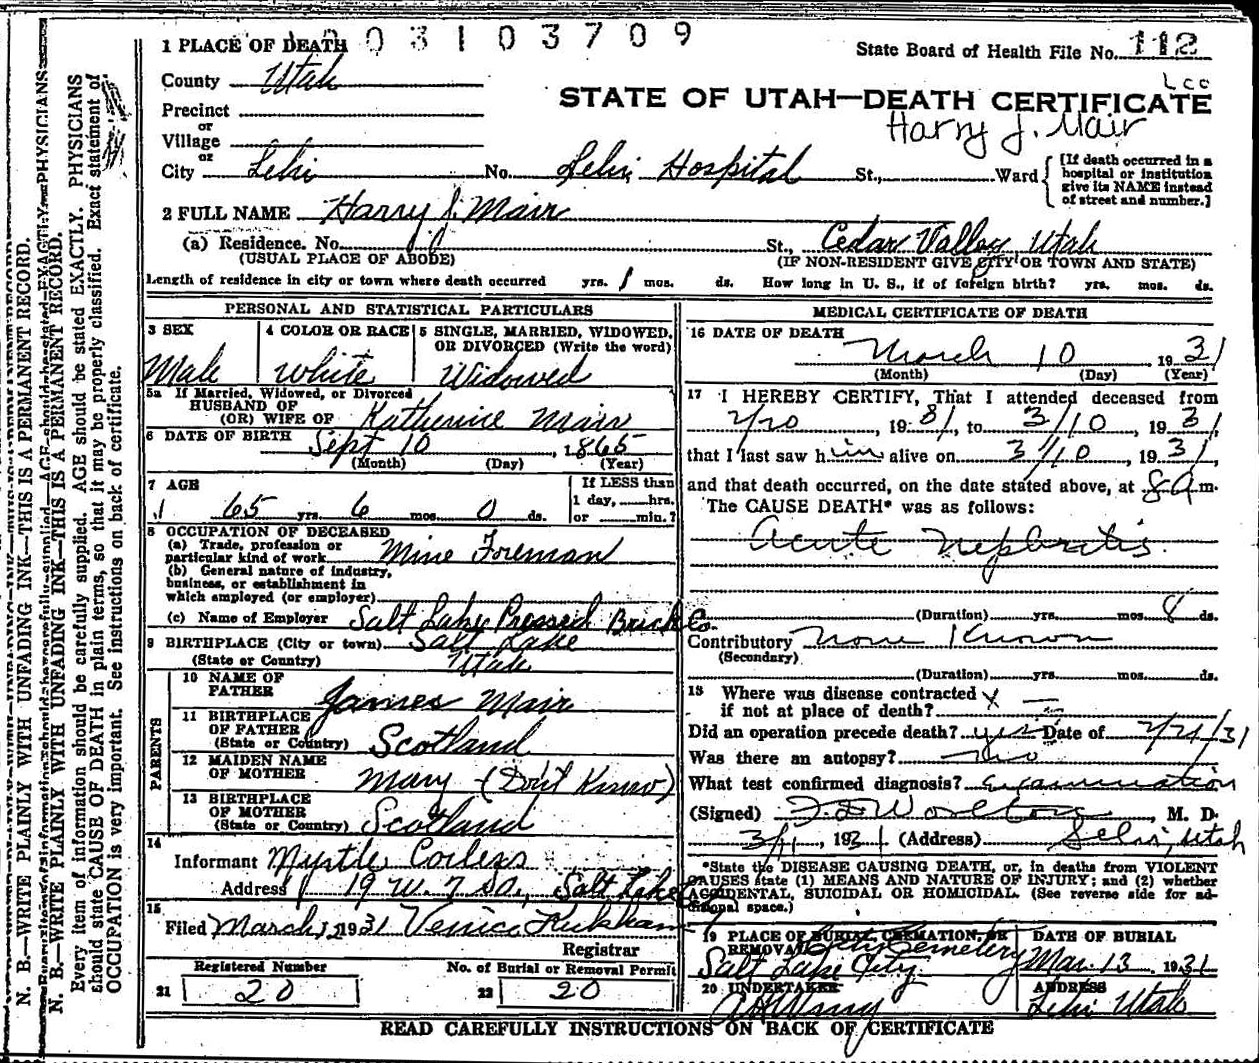 003103709
1 PLACE OF DEATH
State Board of Health File No. 112
County Utah
Lcc
STATE OF UTAH—DEATH CERTIFICATE
Precinct
Harry J. Mair
or
Village
or
City Lehi No. Lehi Hospital St., Ward
[If death occurred in a
hospital or institution
give its NAME instead
of street and number.]
2 FULL NAME Harry J. Mair
(a) Residence. No. St., Cedar Valley Utah
(USUAL PLACE OF ABODE) (IF NON-RESIDENT GIVE CITY OR TOWN AND STATE)
Length of residence in city or town where death occurred yrs. 1 mos. ds. How long in U. S., if of foreign birth? yrs. mos. ds.
PERSONAL AND STATISTICAL PARTICULARS
3 SEX 4 COLOR OR RACE 5 SINGLE, MARRIED, WIDOWED,
OR DIVORCED (Write the word)
Male White Widowed
5a If Married, Widowed, or Divorced
HUSBAND OF
(OR) WIFE OF Katherine Mair
6 DATE OF BIRTH Sept 10, 1865
(Month) (Day) (Year)
7 AGE
If LESS than
1 day, hrs.
or min.?
65 yrs. 6 mos. 0 ds.
8 OCCUPATION OF DECEASED
(a) Trade, profession or
particular kind of work Mine Foreman
(b) General nature of industry,
business, or establishment in
which employed (or employer)
(c) Name of Employer Salt Lake Pressed Brick Co.
9 BIRTHPLACE (City or town) Salt Lake
(State or Country) Utah
PARENTS
10 NAME OF
FATHER James Mair
11 BIRTHPLACE
OF FATHER
(State or Country) Scotland
12 MAIDEN NAME
OF MOTHER Mary (Don't Know)
13 BIRTHPLACE
OF MOTHER
(State or Country) Scotland
14
Informant Myrtle
Address 19 W. 7 So, Salt Lake
15
Filed March 12 1931 Venice
Registrar
Registered Number No. of Burial or Removal Permit
21 20 22 20
MEDICAL CERTIFICATE OF DEATH
16 DATE OF DEATH
March 10 1931
(Month) (Day) (Year)
17 I HEREBY CERTIFY, That I attended deceased from
, 1931, to 3/10, 1931,
that I last saw him alive on 3/10, 1931
and that death occurred, on the date stated above, at 8 a m.
The CAUSE DEATH* was as follows:
Acute Nephritis.
(Duration) yrs. mos. 8 ds.
Contributory None Known
(Secondary)
(Duration) yrs. mos. ds.
18 Where was disease contracted
if not at place of death?
Did an operation precede death? yes Date of 2/21/31
Was there an autopsy? No
What test confirmed diagnosis? Examination
(Signed) , M. D.
3/11, 1931 (Address) Lehi, Utah
*State the DISEASE CAUSING DEATH, or, in deaths from VIOLENT
CAUSES state (1) MEANS AND NATURE OF INJURY; and (2) whether
ACCIDENTAL, SUICIDAL OR HOMICIDAL. (See reverse side for ad-
ditional space.)
19 PLACE OF BURIAL, CREMATION, OR
REMOVAL City Cemetery
Salt Lake City
DATE OF BURIAL
Mar. 13 1931
20 UNDERTAKER
ADDRESS
Lehi Utah
READ CAREFULLY INSTRUCTIONS ON BACK OF CERTIFICATE
N. B.—WRITE PLAINLY WITH UNFADING INK—THIS IS A PERMANENT RECORD.
N. B.—WRITE PLAINLY WITH UNFADING INK—THIS IS A PERMANENT RECORD.
Every item of information should be carefully supplied. AGE should be stated EXACTLY. PHYSICIANS
should state CAUSE OF DEATH in plain terms, so that it may be properly classified. Exact statement of
OCCUPATION is very important. See instructions on back of certificate.